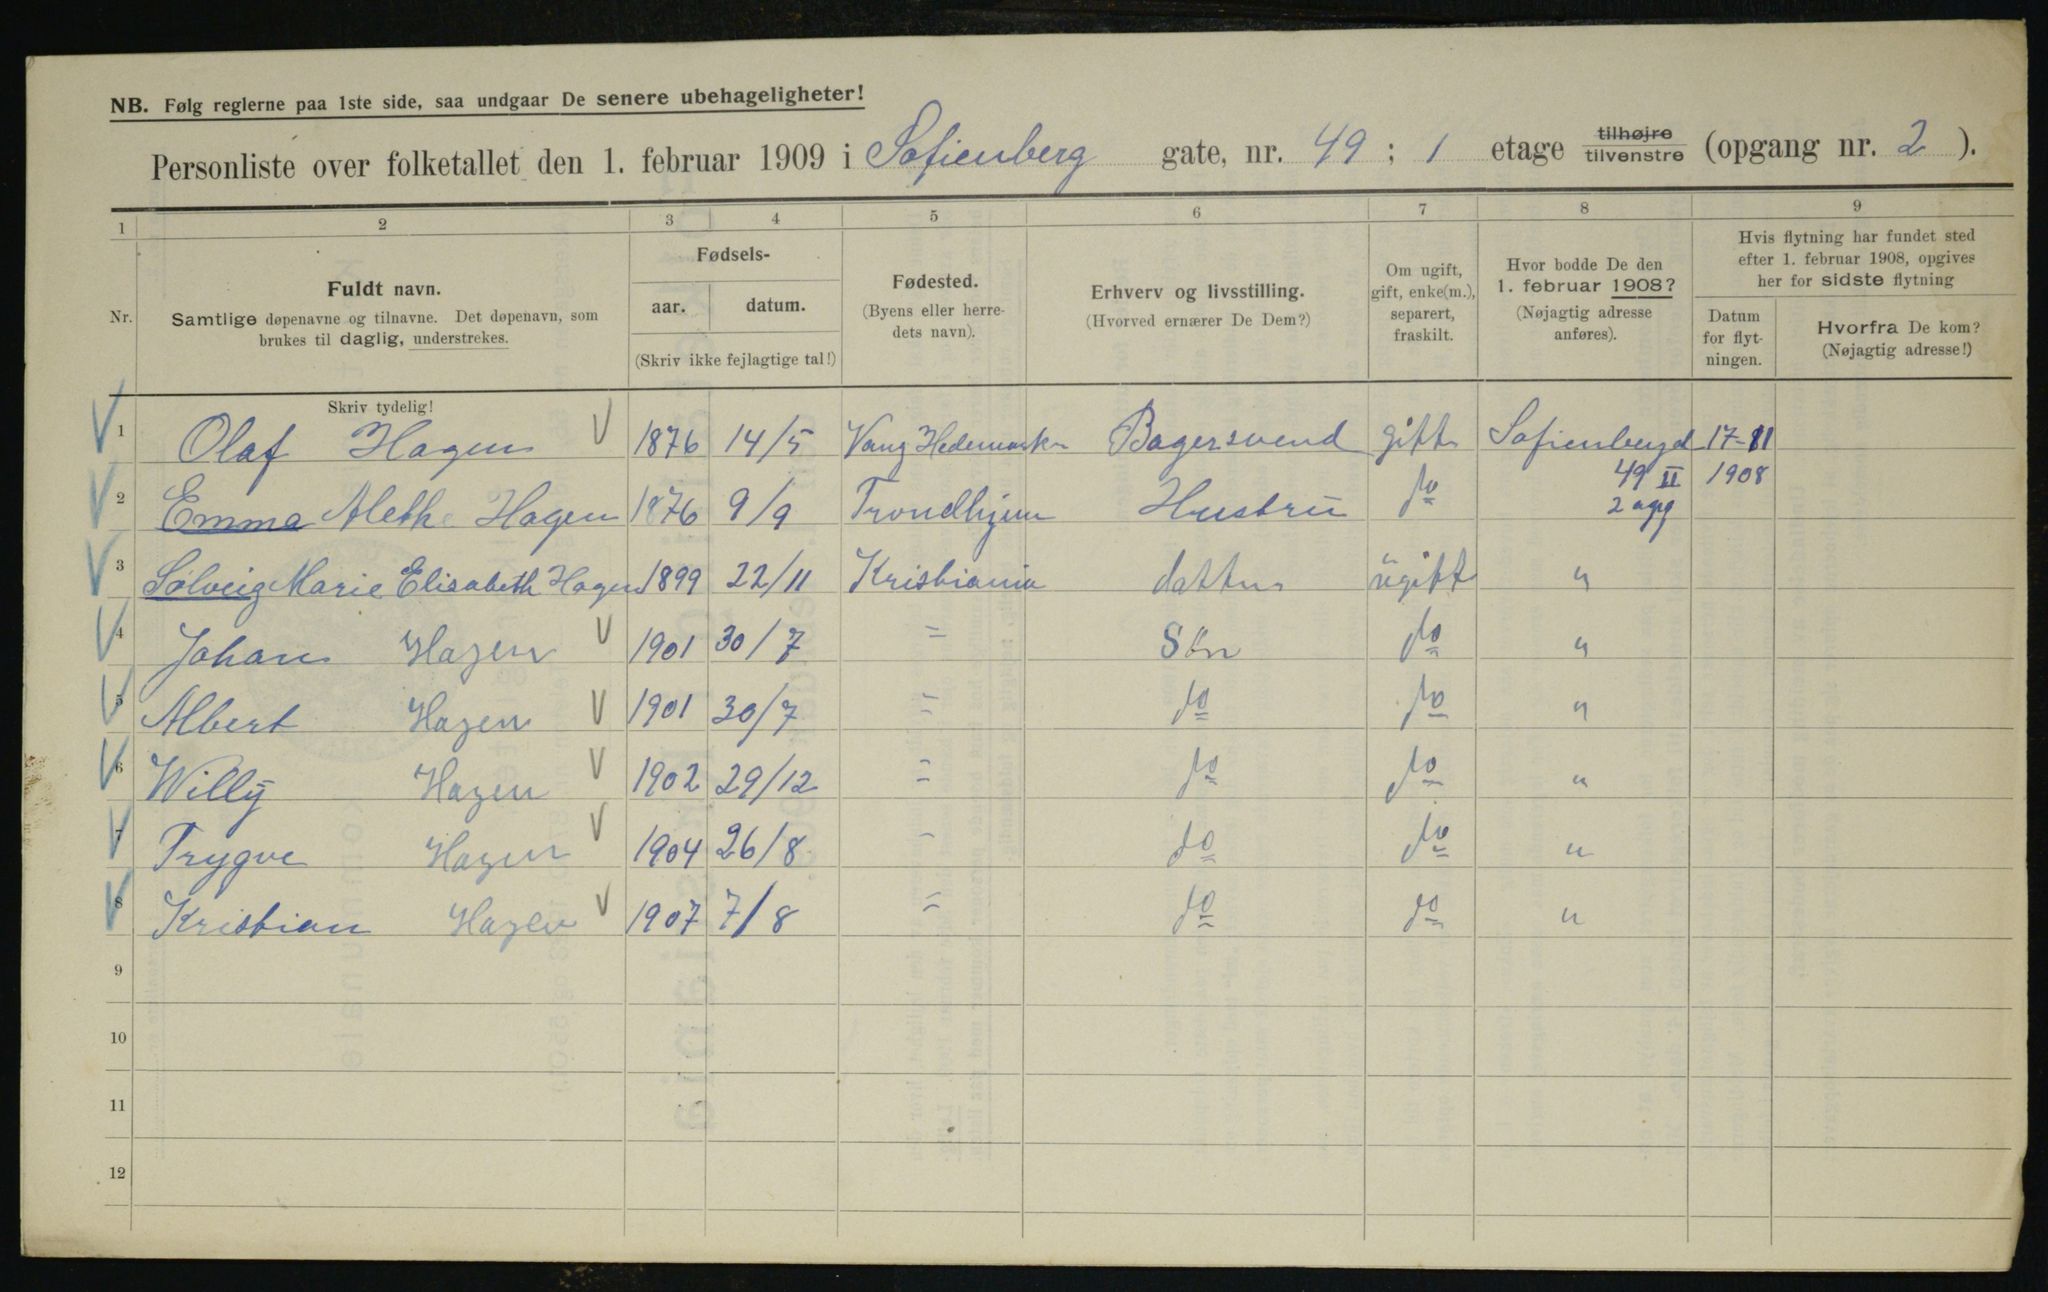 NB. Følg reglerne paa 1ste side, saa undgaar De senere ubehageligheter!
Personliste over folketallet den 1. februar 1909 i Sofienberg gate, nr. 49 ; 1 etage tilhøjre tilvenstre (opgang nr. 2 ).
1 2 3 4 5 6 7 8 9
Nr.
Fuldt navn.
Samtlige døpenavne og tilnavne. Det døpenavn, som
brukes til daglig, understrekes.
Skriv tydelig!
Fødsels-
aar. datum.
(Skriv ikke fejlagtige tal!)
Fødested.
(Byens eller herre-
dets navn).
Erhverv og livsstilling.
(Hvorved ernærer De Dem?)
Om ugift,
gift, enke(m.),
separert,
fraskilt.
Hvor bodde De den
1. februar 1908?
(Nøjagtig adresse
anføres).
Hvis flytning har fundet sted
efter 1. februar 1908, opgives
her for sidste flytning
Datum
for flyt-
ningen.
Hvorfra De kom?
(Nøjagtig adresse!)
1 Olaf Hagen 1876 14/5 Vang Hedemarken Bagersvend gift Sofienbergd 17-11
49 II 1908
2 Emma Alethe Hagen 1876 9/9 Trondhjem Hustru do 2 opg
3 Solveig Marie Elisabeth Hagen 1899 22/11 Kristiania datter ugift "
4 Johan Hagen 1901 30/7 = Sön do "
5 Albert Hagen 1901 30/7 = do do "
6 Willy Hagen 1902 29/12 = do do "
7 Trygve Hagen 1904 26/8 - do do "
8 Kristian Hagen 1907 7/8 = do do "
9
10
11
12